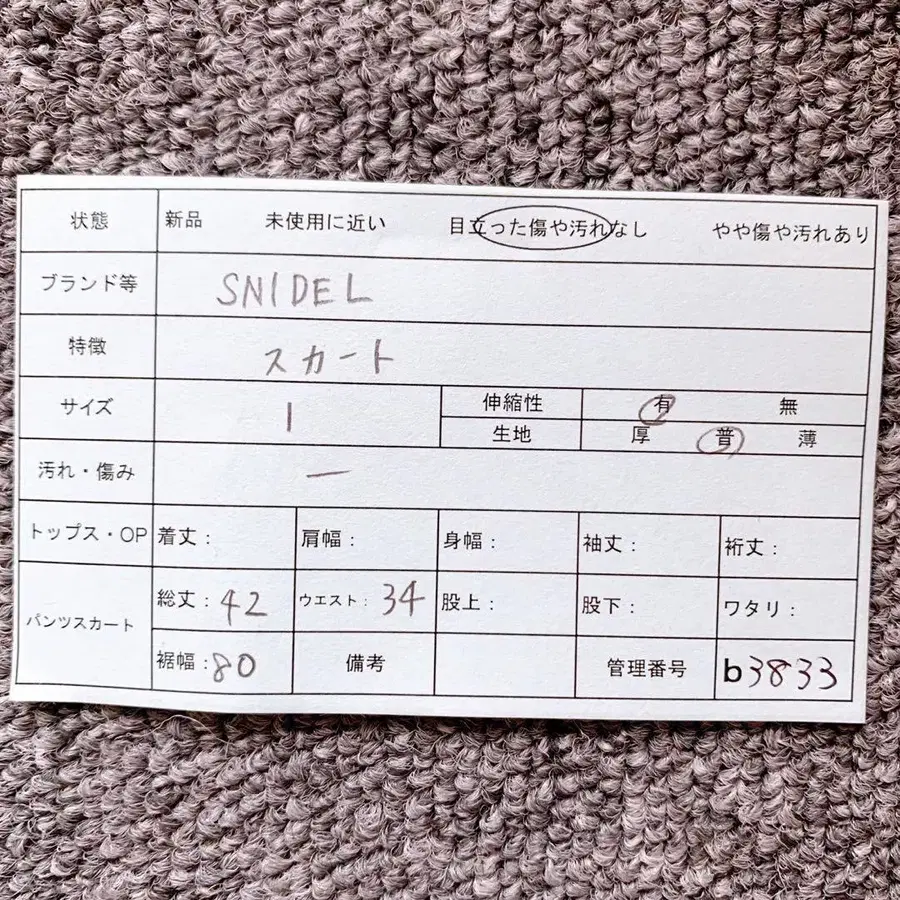 状態 新品 未使用に近い 目立った傷や汚れなし やや傷や汚れあり
ブランド等 SNIDEL
特徴 スカート
サイズ 1 伸縮性 有 無
生地 厚 普 薄
汚れ・傷み ー
トップス・OP 着丈: 肩幅: 身幅: 袖丈: 裄丈:
パンツスカート 総丈:42 ウエスト:34 股上: 股下: ワタリ:
裾幅:80 備考 管理番号 b3833